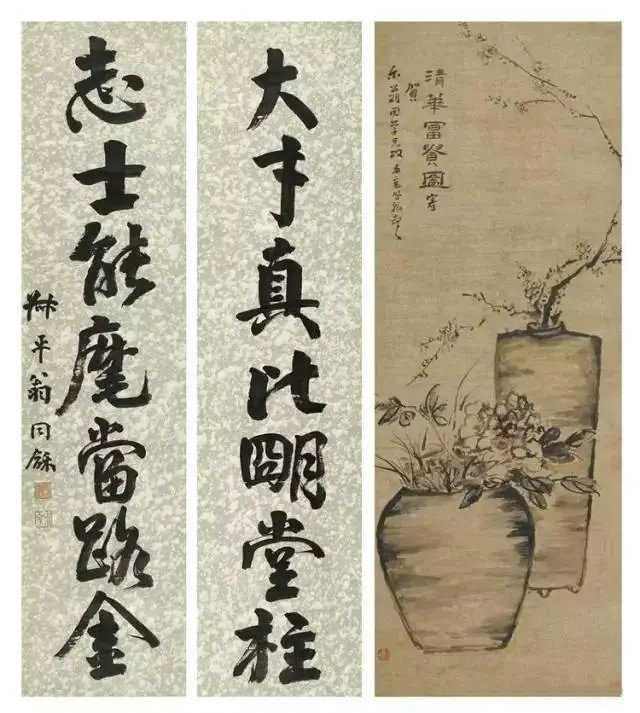 清華富貴圖
賀
大才真比朙堂柱
志士能麾當路金
叔平翁同龢